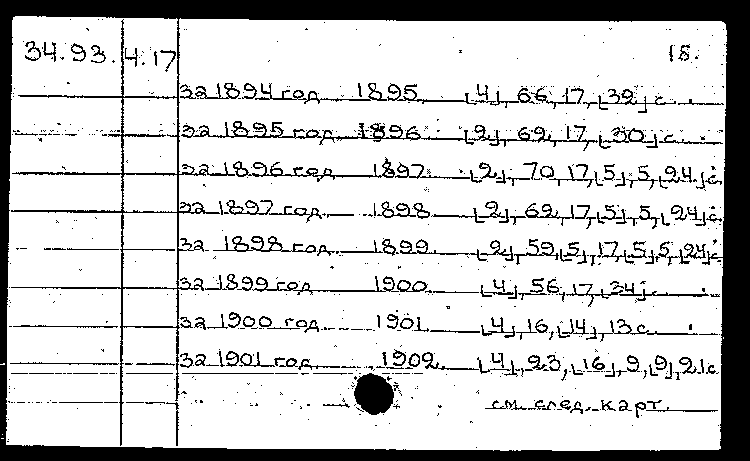 34.93. 4.17 18.
за 1894 год 1895. [4], 66, 17, [39] с.
за 1895 год 1896 [2], 69, 17, [30] с.
за 1896 год 1897. [2], 70, 17, [5], 5, [24] с.
за 1897 год. 1898. [2], 69, 17, [5], 5, [24] с.
за 1898 год. 1899. [2], 59, [5], 17, [5], 5, [24] с.
за 1899 год 1900. [4], 56, 17, [34] с.
за 1900 год. 1901. [4], 16, [14], 13 с.
за 1901 год. 1902. [4], 23, [16], 9, [9], 21 с.
см. след. карт.